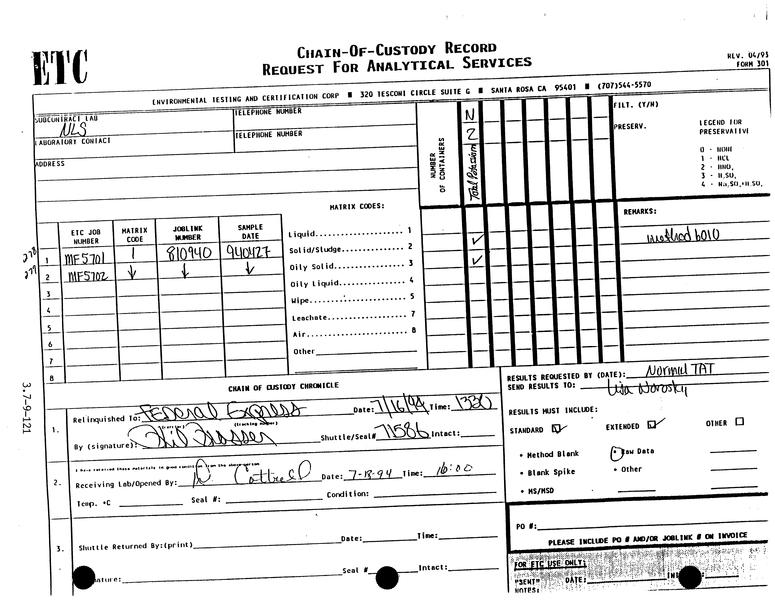 ETC
CHAIN-OF-CUSTODY RECORD
REQUEST FOR ANALYTICAL SERVICES
REV. 04/93
FORM 301
ENVIRONMENTAL TESTING AND CERTIFICATION CORP ■ 320 TESCONI CIRCLE SUITE G ■ SANTA ROSA CA 95401 ■ (707)544-5570
SUBCONTRACT LAB
NLS
TELEPHONE NUMBER
LABORATORY CONTACT
TELEPHONE NUMBER
ADDRESS
NUMBER OF CONTAINERS
N
2
Total Potassium
FILT. (Y/N)
PRESERV.
LEGEND FOR
PRESERVATIVE
0 - NONE
1 - HCL
2 - HNO,
3 - H,SO,
REMARKS:
method 6010
ETC JOB NUMBER
MATRIX CODE
JOBLINK NUMBER
SAMPLE DATE
278 1 MF5701 1 810940 940427
279 2 MF5702 ↓ ↓ ↓
3
4
5
6
7
8
MATRIX CODES:
Liquid 1
Solid/Sludge 2
Oily Solid 3
Oily Liquid 4
Wipe 5
Leachate 7
Air 8
Other
✓
✓
3.7-9-121
CHAIN OF CUSTODY CHRONICLE
1. Relinquished To: Federal Express Date: 7/16/94 Time: 1330
(carrier) (tracking number)
By (signature): Shuttle/Seal# 71586 Intact:
I have received these materials in good condition from the above person
2. Receiving Lab/Opened By: D Cottrell Date: 7-18-94 Time: 16:00
Temp. °C Seal #: Condition:
3. Shuttle Returned By:(print) Date: Time:
ature: Seal # Intact:
RESULTS REQUESTED BY (DATE): Normal TAT
SEND RESULTS TO: Lisa Worosky
RESULTS MUST INCLUDE:
STANDARD ☑ EXTENDED ☑ OTHER ☐
• Method Blank • Raw Data
• Blank Spike • Other
• MS/MSD
PO #:
PLEASE INCLUDE PO # AND/OR JOBLINK # ON INVOICE
FOR ETC USE ONLY:
"SENT" DATE:
NOTES: